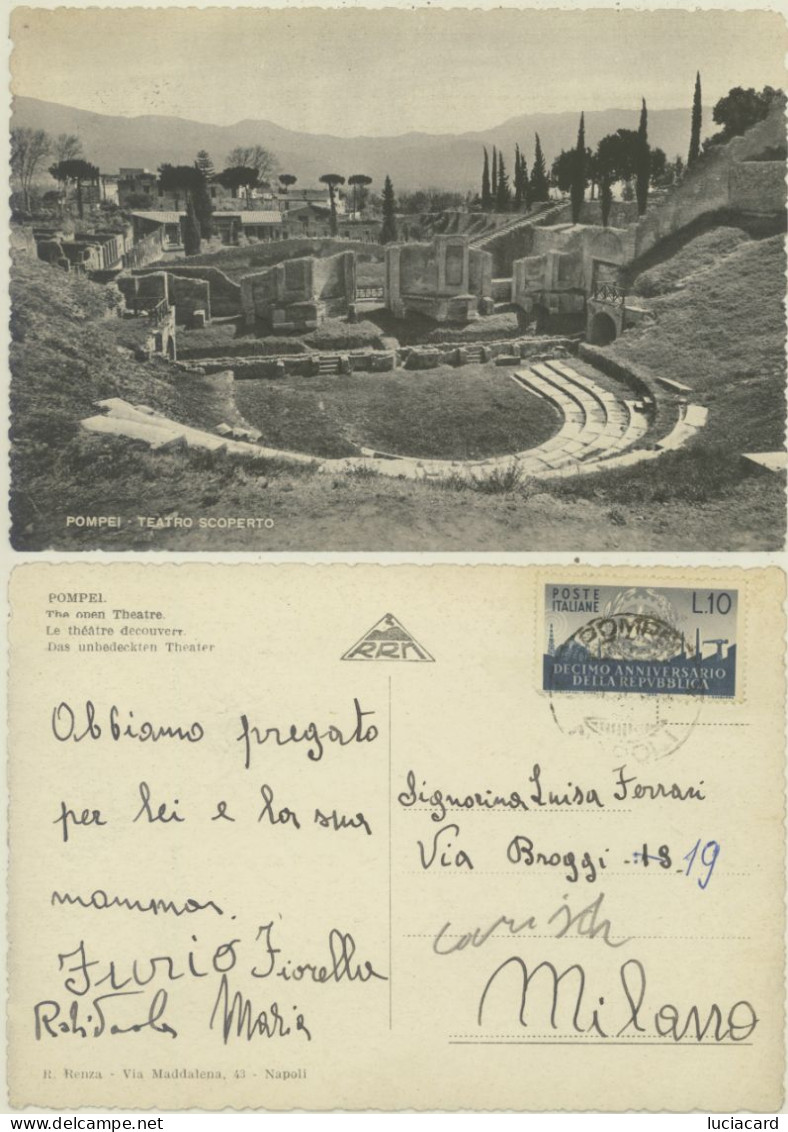 POMPEI - TEATRO SCOPERTO
POMPEI.
The open Theatre.
Le théâtre decouvert.
Das unbedeckten Theater
RRN
POSTE
ITALIANE
L.10
DECIMO ANNIVERSARIO
DELLA REPVBBLICA
POMPEI
Abbiamo pregato
per lei e la sua
mamma.
Furio Fiorella
Maria
Signorina Luisa Ferrari
Via Broggi 18 19
Milano
R. Renza - Via Maddalena, 43 - Napoli
luciacard